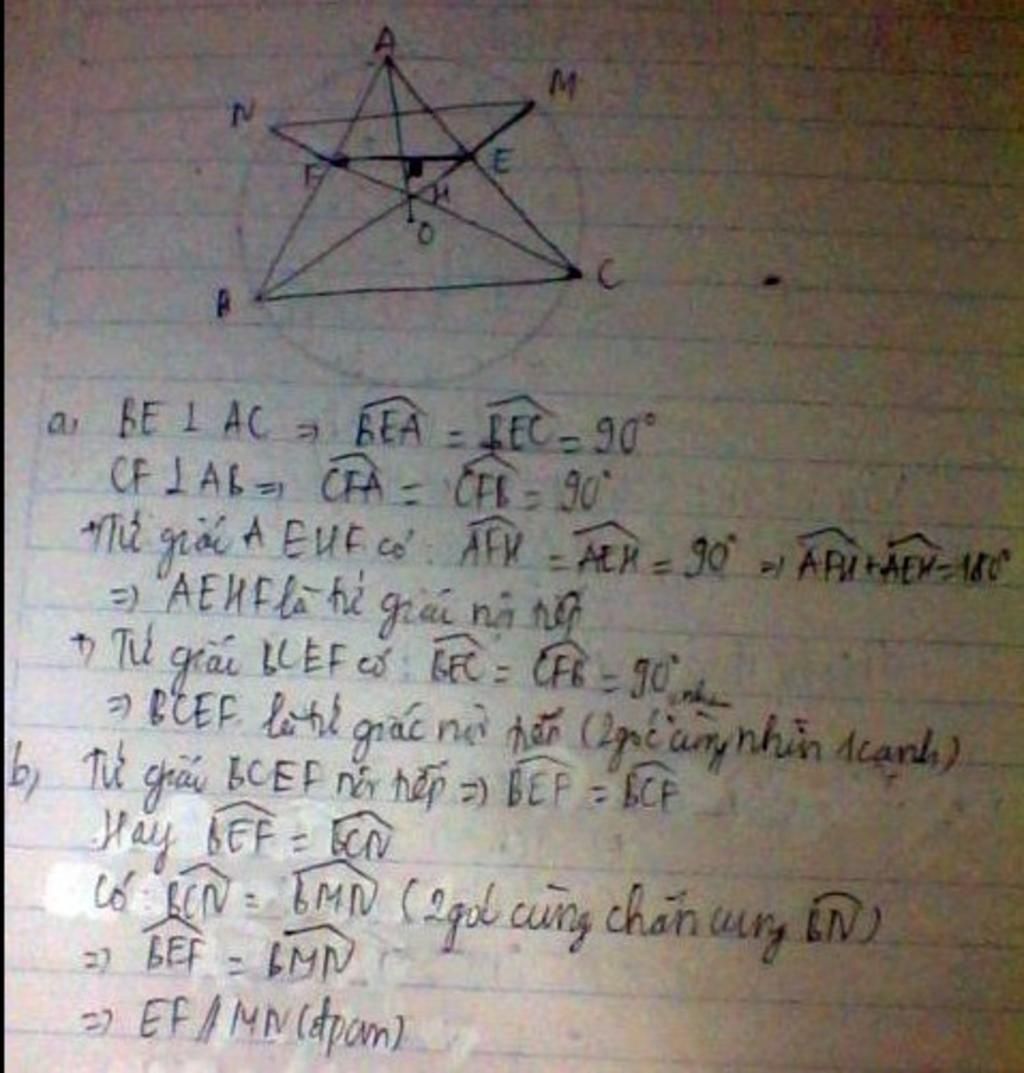 A
N
M
F
E
H
O
B
C
a, BE ⊥ AC ⇒ \widehat{BEA} = \widehat{BEC} = 90°
CF ⊥ AB ⇒ \widehat{CFA} = \widehat{CFB} = 90°
+ Tứ giác AEHF có: \widehat{AFH} = \widehat{AEH} = 90° ⇒ \widehat{AFH} + \widehat{AEH} = 180°
⇒ AEHF là tứ giác nội tiếp
+ Tứ giác BCEF có: \widehat{BEC} = \widehat{CFB} = 90°
⇒ BCEF là tứ giác nội tiếp (2 góc cùng nhìn 1 cạnh)
b, Tứ giác BCEF nội tiếp ⇒ \widehat{BEF} = \widehat{BCF}
Hay \widehat{BEF} = \widehat{BCN}
Có: \widehat{BCN} = \widehat{BMN} (2 góc cùng chắn cung \widehat{BN})
⇒ \widehat{BEF} = \widehat{BMN}
⇒ EF // MN (đpcm)